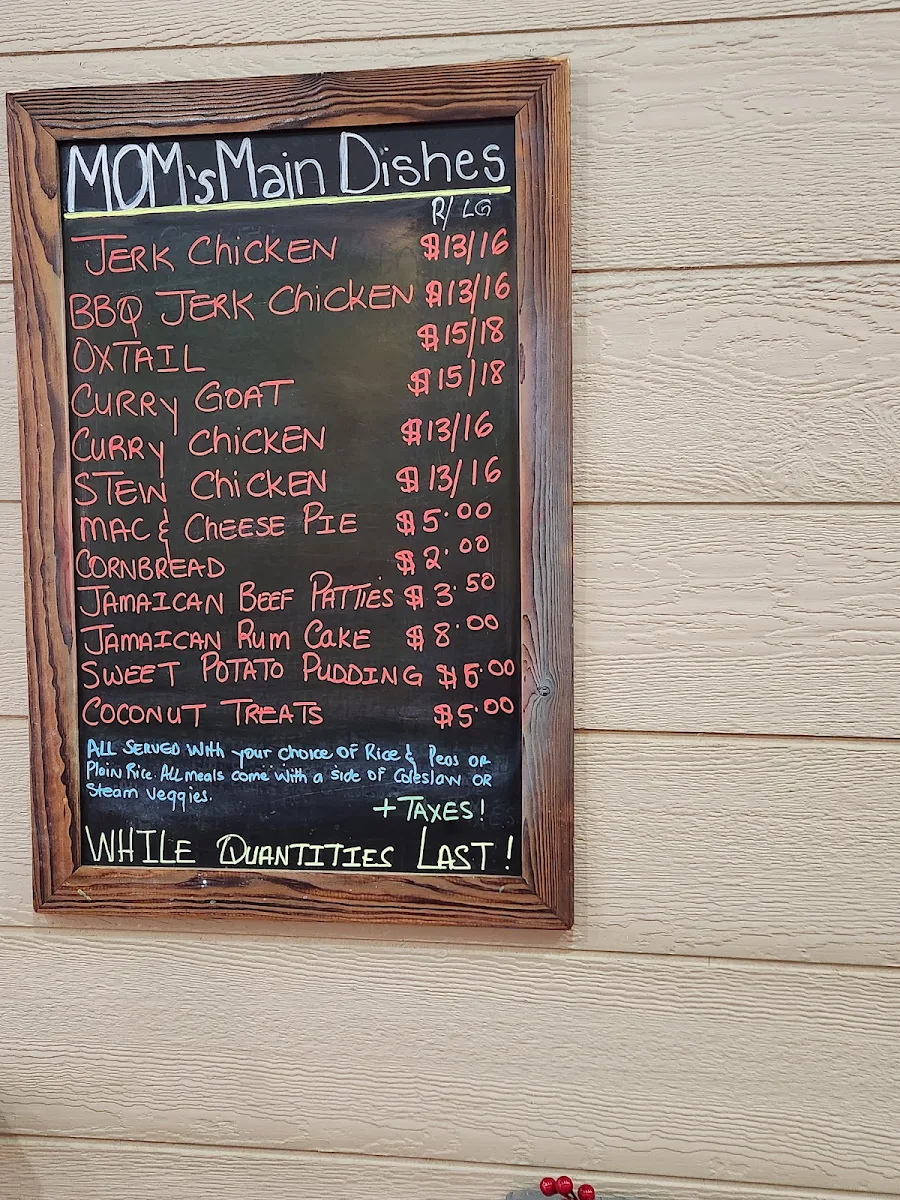 MOM's Main Dishes
R/ LG
JERK CHICKEN $13/16
BBQ JERK CHICKEN $13/16
OXTAIL $15/18
CURRY GOAT $15/18
CURRY CHICKEN $13/16
STEW CHICKEN $13/16
MAC & CHEESE PIE $5.00
CORNBREAD $2.00
JAMAICAN BEEF PATTIES $3.50
JAMAICAN RUM CAKE $8.00
SWEET POTATO PUDDING $6.00
COCONUT TREATS $5.00
ALL SERVED With your choice OF Rice & Peas OR
Plain Rice. All meals come with a side OF Coleslaw OR
Steam veggies.
+ TAXES!
WHILE QUANTITIES LAST!